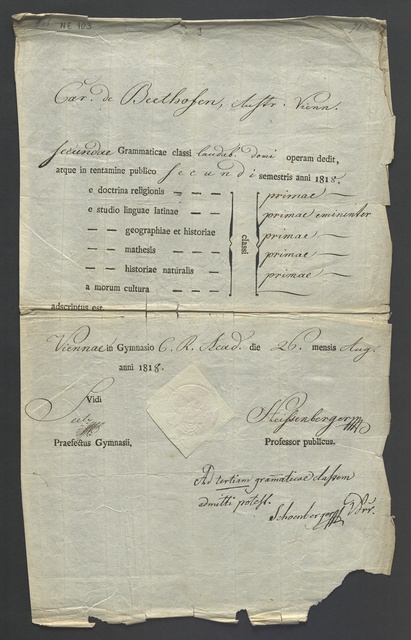 NE 103
Car. de Beethofen, Austr. Vienn.
secundae Grammaticae classi laudab. domi operam dedit,
atque in tentamine publico secundi semestris anni 1818.
e doctrina religionis — — primae —
e studio linguae latinae — — primae eminenter
— — geographiae et historiae primae —
— — mathesis — — primae —
— — historiae naturalis — primae —
a morum cultura — —
classi
adscriptus est.
Viennae in Gymnasio C. R. Acad. die 26. mensis Aug.
anni 1818.
Vidi
Praefectus Gymnasii,
Professor publicus.
Ad tertiam grammaticae classem
admitti potest.
Schoenberger